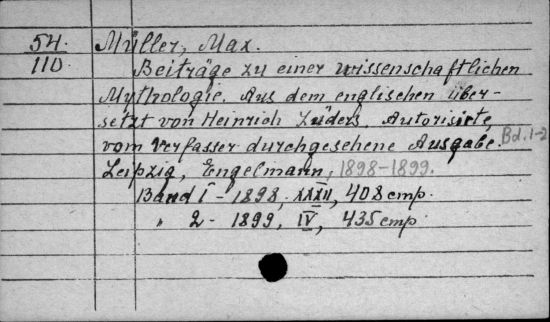 54. Müller, Max.
110 Beiträge zu einer wissenschaftlichen
Mythologie. Aus dem englischen über-
setzt von Heinrich Lüders. Autorisirte,
vom Verfasser durchgesehene Ausgabe. Bd. 1-2
Leipzig, Engelmann, 1898-1899.
Band I - 1898, XXXII, 408 стр.
" 2 - 1899, IV, 435 стр.